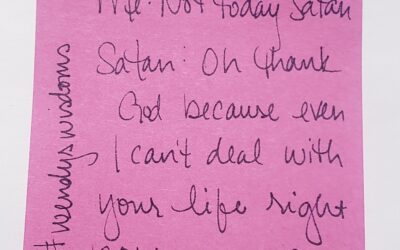 Me: Not today Satan
Satan: Oh thank
God because even
I can't deal with
your life right
#wendyswisdoms